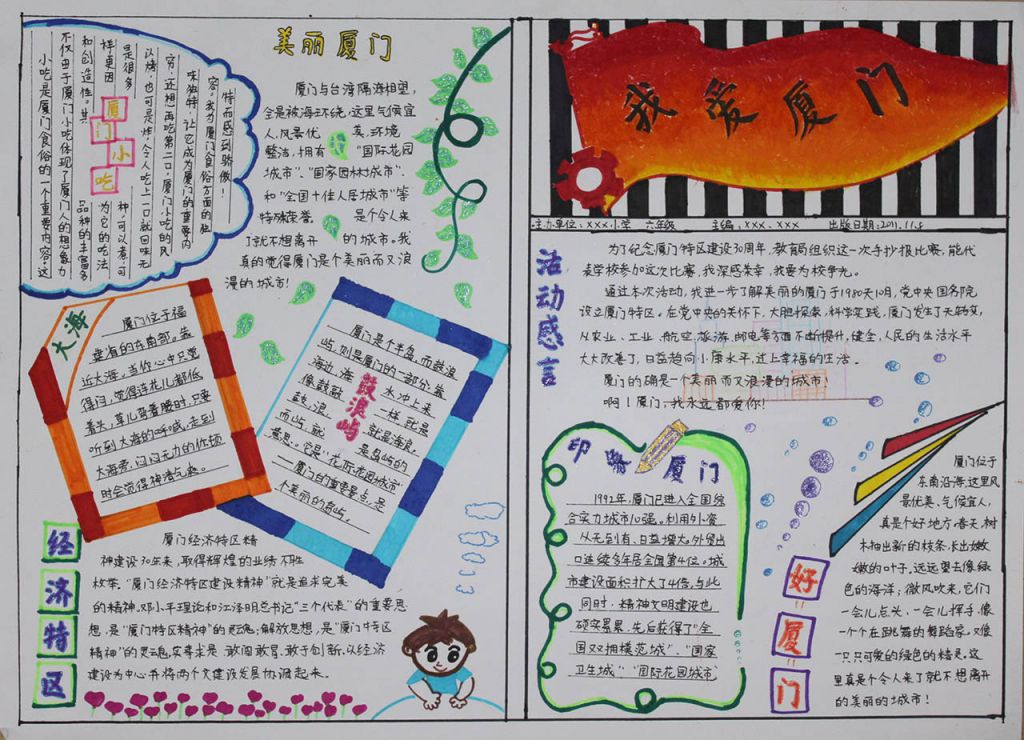 我爱厦门
主办单位：xxx小学 六年级 主编：xxx.xxx 出版日期：2011.11.5
美丽厦门
厦门与台湾隔海相望,
全是被海环绕,这里气候宜
人,风景优美,环境
整洁,拥有"国际花园
城市"、"国家园林城市"、
和"全国十佳人居城市"等
特殊荣誉。是个令人来
了就不想离开的城市。我
真的觉得厦门是个美丽而又浪
漫的城市！
厦门小吃
小吃是厦门食俗的一个重要内容。这
不仅由于厦门小吃体现了厦门人的想象力
和创造性。其品种的丰富多
样更因为它的吃法
是很多种,可以煮,可
以烤,也可是炸,令人吃上一口就回味无
穷,还想再吃第二口。厦门小吃的风
味独特,让它成为厦门的重要内
容。我为厦门食俗方面的独
特而感到骄傲！
大海
厦门位于福
建省的东南部。靠
近大海。当你心中只觉
得闷,觉得连花儿都低
着头,草儿弯着腰时,只要
听到大海的呼喊,走到
大海旁,闷闷无力的你顿
时会觉得神清气爽。
鼓浪屿
厦门是个半岛,而鼓浪
屿,则是厦门的一部分,靠
海边,海水冲上来
像鼓敲一样,就是
鼓,浪,就是海浪,
而屿,就是岛屿的
意思。它是"花园式园城市"
——厦门的重要景点,是
个美丽的岛屿。
经济特区
厦门经济特区精
神建设30年来,取得辉煌的业绩不胜
枚举。"厦门经济特区建设精神"就是追求完美
的精神,邓小平理论和江泽明总书记"三个代表"的重要思
想,是"厦门特区精神"的灵魂;解放思想,是"厦门特区
精神"的灵魂,实事求是,敢闯敢冒,敢于创新,以经济
建设为中心并将两个文建设发展协调起来。
活动感言
为了纪念厦门特区建设30周年,教育局组织这一次手抄报比赛,能代
表学校参加这次比赛,我深感荣幸,我要为校争光。
通过本次活动,我进一步了解美丽的厦门于1980天10月,党中央国务院
设立厦门特区。在党中央的关怀下,大胆探索,科学实践,厦门发生了天转成,
从农业、工业、航空、旅游、邮电等方面不断提升,健全,人民的生活水平
大大改善了,日益趋向小康水平,过上幸福的生活。
厦门的确是一个美丽而又浪漫的城市！
啊！厦门,我永远都爱你！
印 厦门
1992年,厦门已进入全国综
合实力城市10强。利用外资
从无到有,日益增大。外贸出
口连续多年居全国第4位。城
市建设面积扩大了4倍。与此
同时,精神文明建设也
硕实累累,先后获得了"全
国双拥模范城"、"国家
卫生城"、"国际花园城市"
好厦门
厦门位于
东南沿海,这里风
景优美、气候宜人,
真是个好地方。春天,树
木抽出新的枝条,长出嫩
嫩的叶子。远远望去像绿
色的海洋;微风吹来,它们
一会儿点头,一会儿挥手,像
一个个在跳舞的舞蹈家。又像
一只只可爱的绿色的精灵。这
里真是个令人来了就不想离开
的美丽的城市！